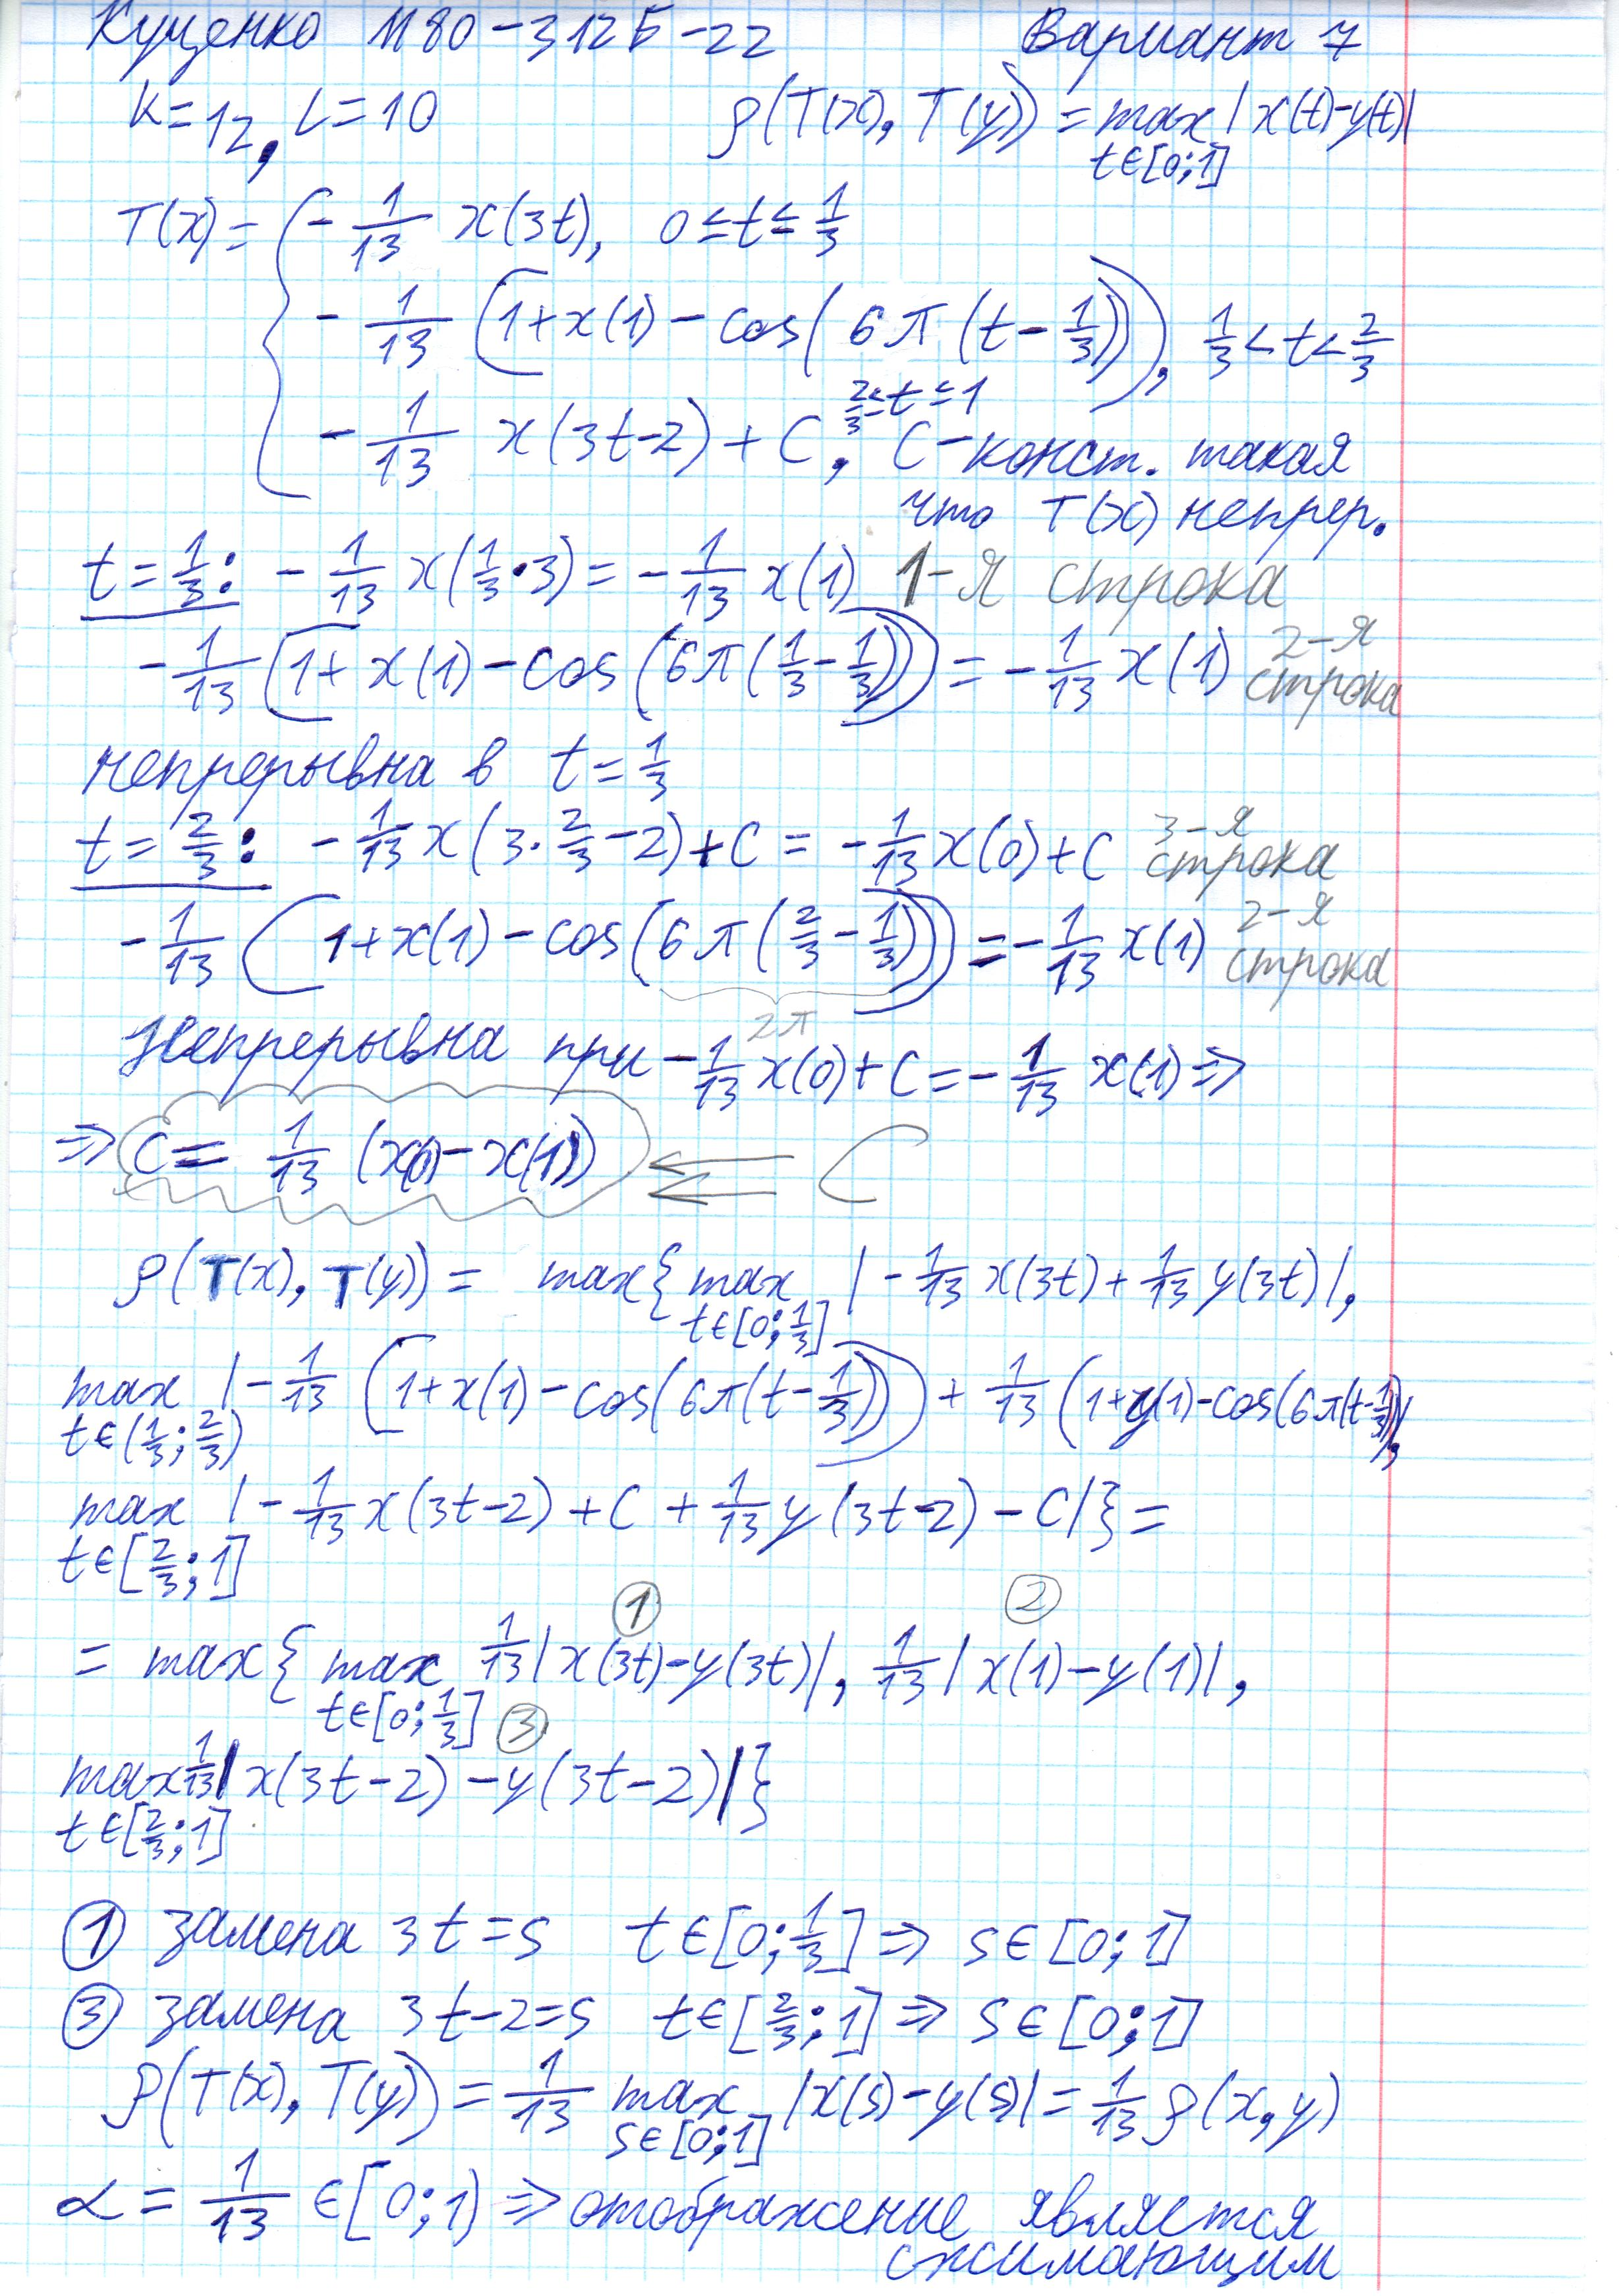 Куценко М80-312Б-22 Вариант 7
K=12, L=10 ρ(T(x), T(y)) = max |x(t)-y(t)|
t∈[0;1]
T(x) = { -1/13 x(3t), 0≤t≤1/3
-1/13 (1+x(1)-cos(6π(t-1/3))), 1/3<t<2/3
-1/13 x(3t-2)+C, 2/3≤t≤1 C-конст. такая
что T(x) непрер.
t=1/3: -1/13 x(1/3·3) = -1/13 x(1) 1-я строка
-1/13 (1+x(1)-cos(6π(1/3-1/3))) = -1/13 x(1) 2-я строка
непрерывна в t=1/3
t=2/3: -1/13 x(3·2/3-2)+C = -1/13 x(0)+C 3-я строка
-1/13 (1+x(1)-cos(6π(2/3-1/3))) = -1/13 x(1) 2-я строка
2π
Непрерывна при -1/13 x(0)+C = -1/13 x(1) ⇒
⇒ C = 1/13 (x(0)-x(1)) ⇐ C
ρ(T(x), T(y)) = max{ max |-1/13 x(3t)+1/13 y(3t)|,
t∈[0;1/3]
max |-1/13 (1+x(1)-cos(6π(t-1/3))) + 1/13 (1+y(1)-cos(6π(t-1/3)))|,
t∈(1/3;2/3)
max |-1/13 x(3t-2)+C+1/13 y(3t-2)-C|} =
t∈[2/3;1]
① ②
= max{ max 1/13 |x(3t)-y(3t)|, 1/13 |x(1)-y(1)|,
t∈[0;1/3] ③
max 1/13 |x(3t-2)-y(3t-2)|}
t∈[2/3;1]
① замена 3t=s t∈[0;1/3] ⇒ s∈[0;1]
③ замена 3t-2=s t∈[2/3;1] ⇒ s∈[0;1]
ρ(T(x), T(y)) = 1/13 max |x(s)-y(s)| = 1/13 ρ(x,y)
s∈[0;1]
α = 1/13 ∈[0;1) ⇒ отображение является
сжимающим